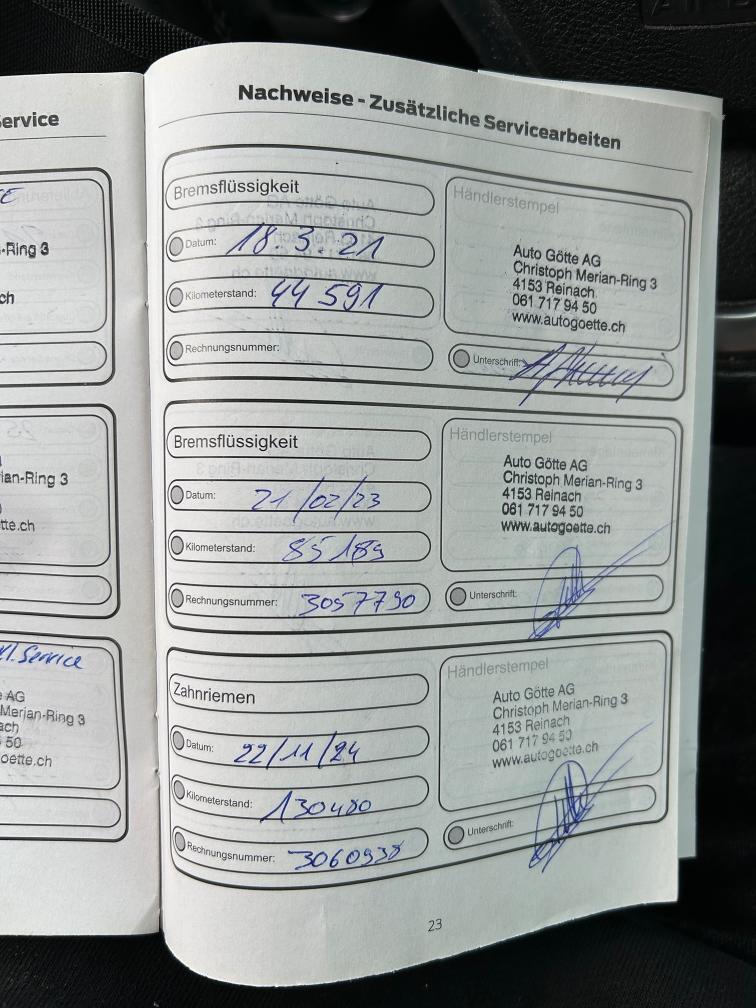 Service
-Ring 3
ch
ian-Ring 3
tte.ch
Kl. Service
AG
Merian-Ring 3
ach
50
oette.ch
Nachweise - Zusätzliche Servicearbeiten
Bremsflüssigkeit
Datum: 18.3.21
Kilometerstand: 44 591
Rechnungsnummer:
Händlerstempel
Auto Götte AG
Christoph Merian-Ring 3
4153 Reinach
061 717 94 50
www.autogoette.ch
Unterschrift:
Bremsflüssigkeit
Datum: 21/02/23
Kilometerstand: 85189
Rechnungsnummer: 3057790
Händlerstempel
Auto Götte AG
Christoph Merian-Ring 3
4153 Reinach
061 717 94 50
www.autogoette.ch
Unterschrift:
Zahnriemen
Datum: 22/11/24
Kilometerstand: 130480
Rechnungsnummer: 3060938
Händlerstempel
Auto Götte AG
Christoph Merian-Ring 3
4153 Reinach
061 717 94 50
www.autogoette.ch
Unterschrift:
23